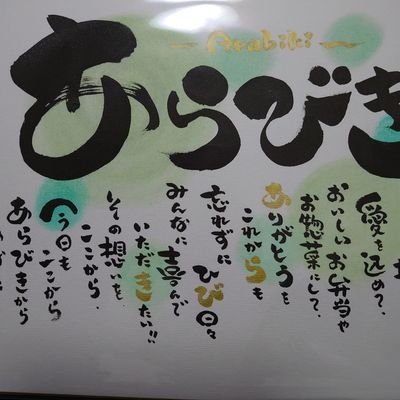 〜Arabiki〜
あらびき
愛を込めて、
おいしいお弁当や
お惣菜にして、
ありがとうを
これからも
忘れずにひび日々
みんなに喜んで
いただきたい!!
その想いを
ここから、
今日もここから
あらびきから